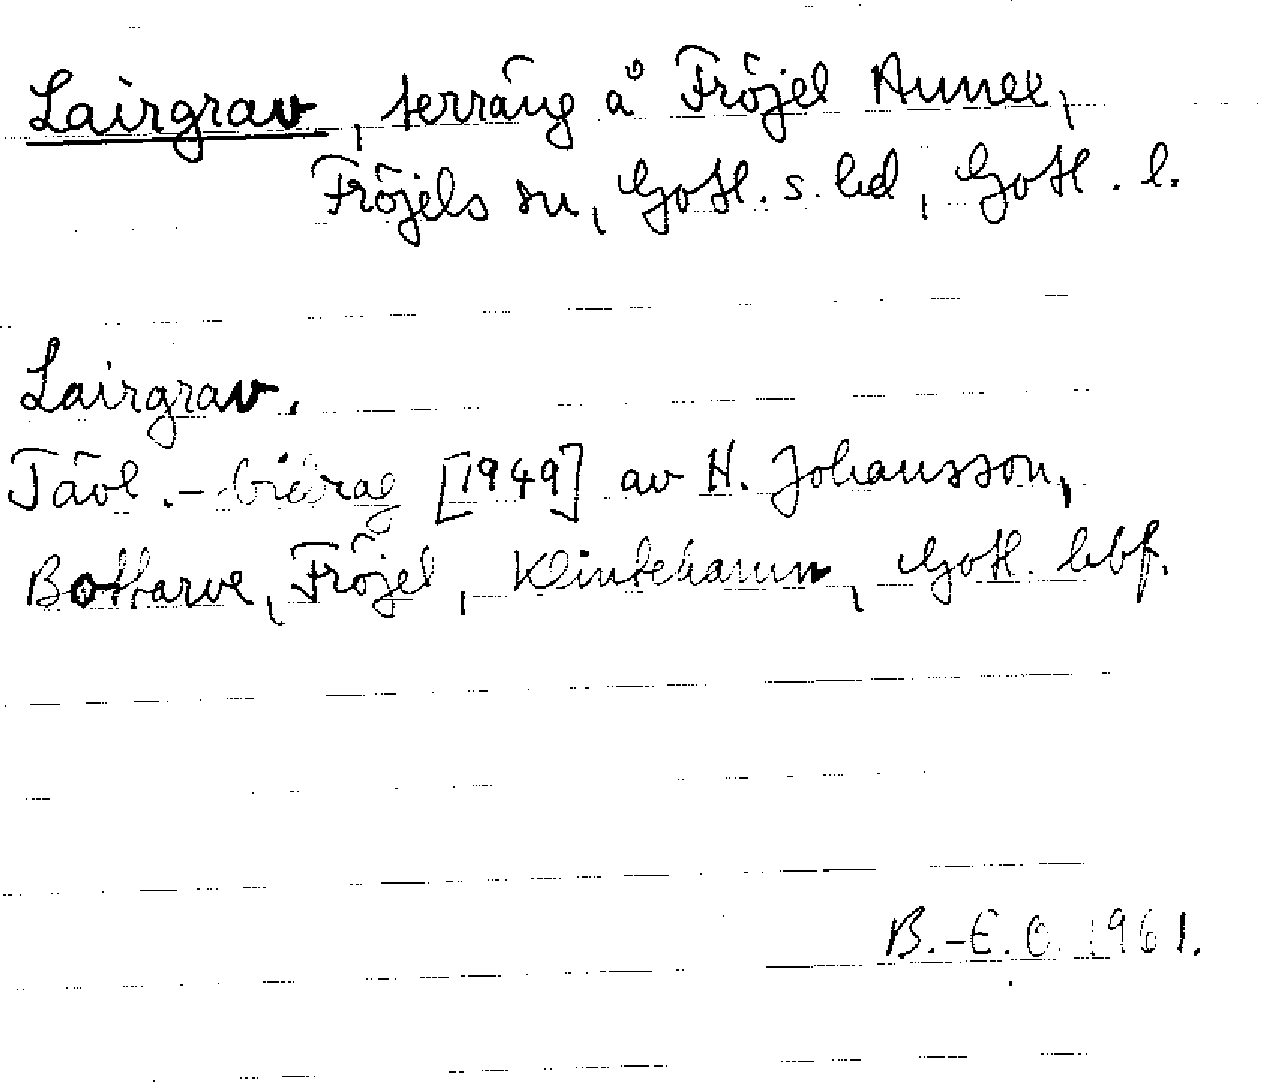 Lairgrav, terräng å Fröjel Annex,
Fröjels sn, Gotl. s. hd, Gotl. l.
Lairgrav.
Tävl.-bidrag [1949] av H. Johansson,
Bottarve, Fröjel, Klintehamn, Gotl. hbf.
B.-E. O. 1961.